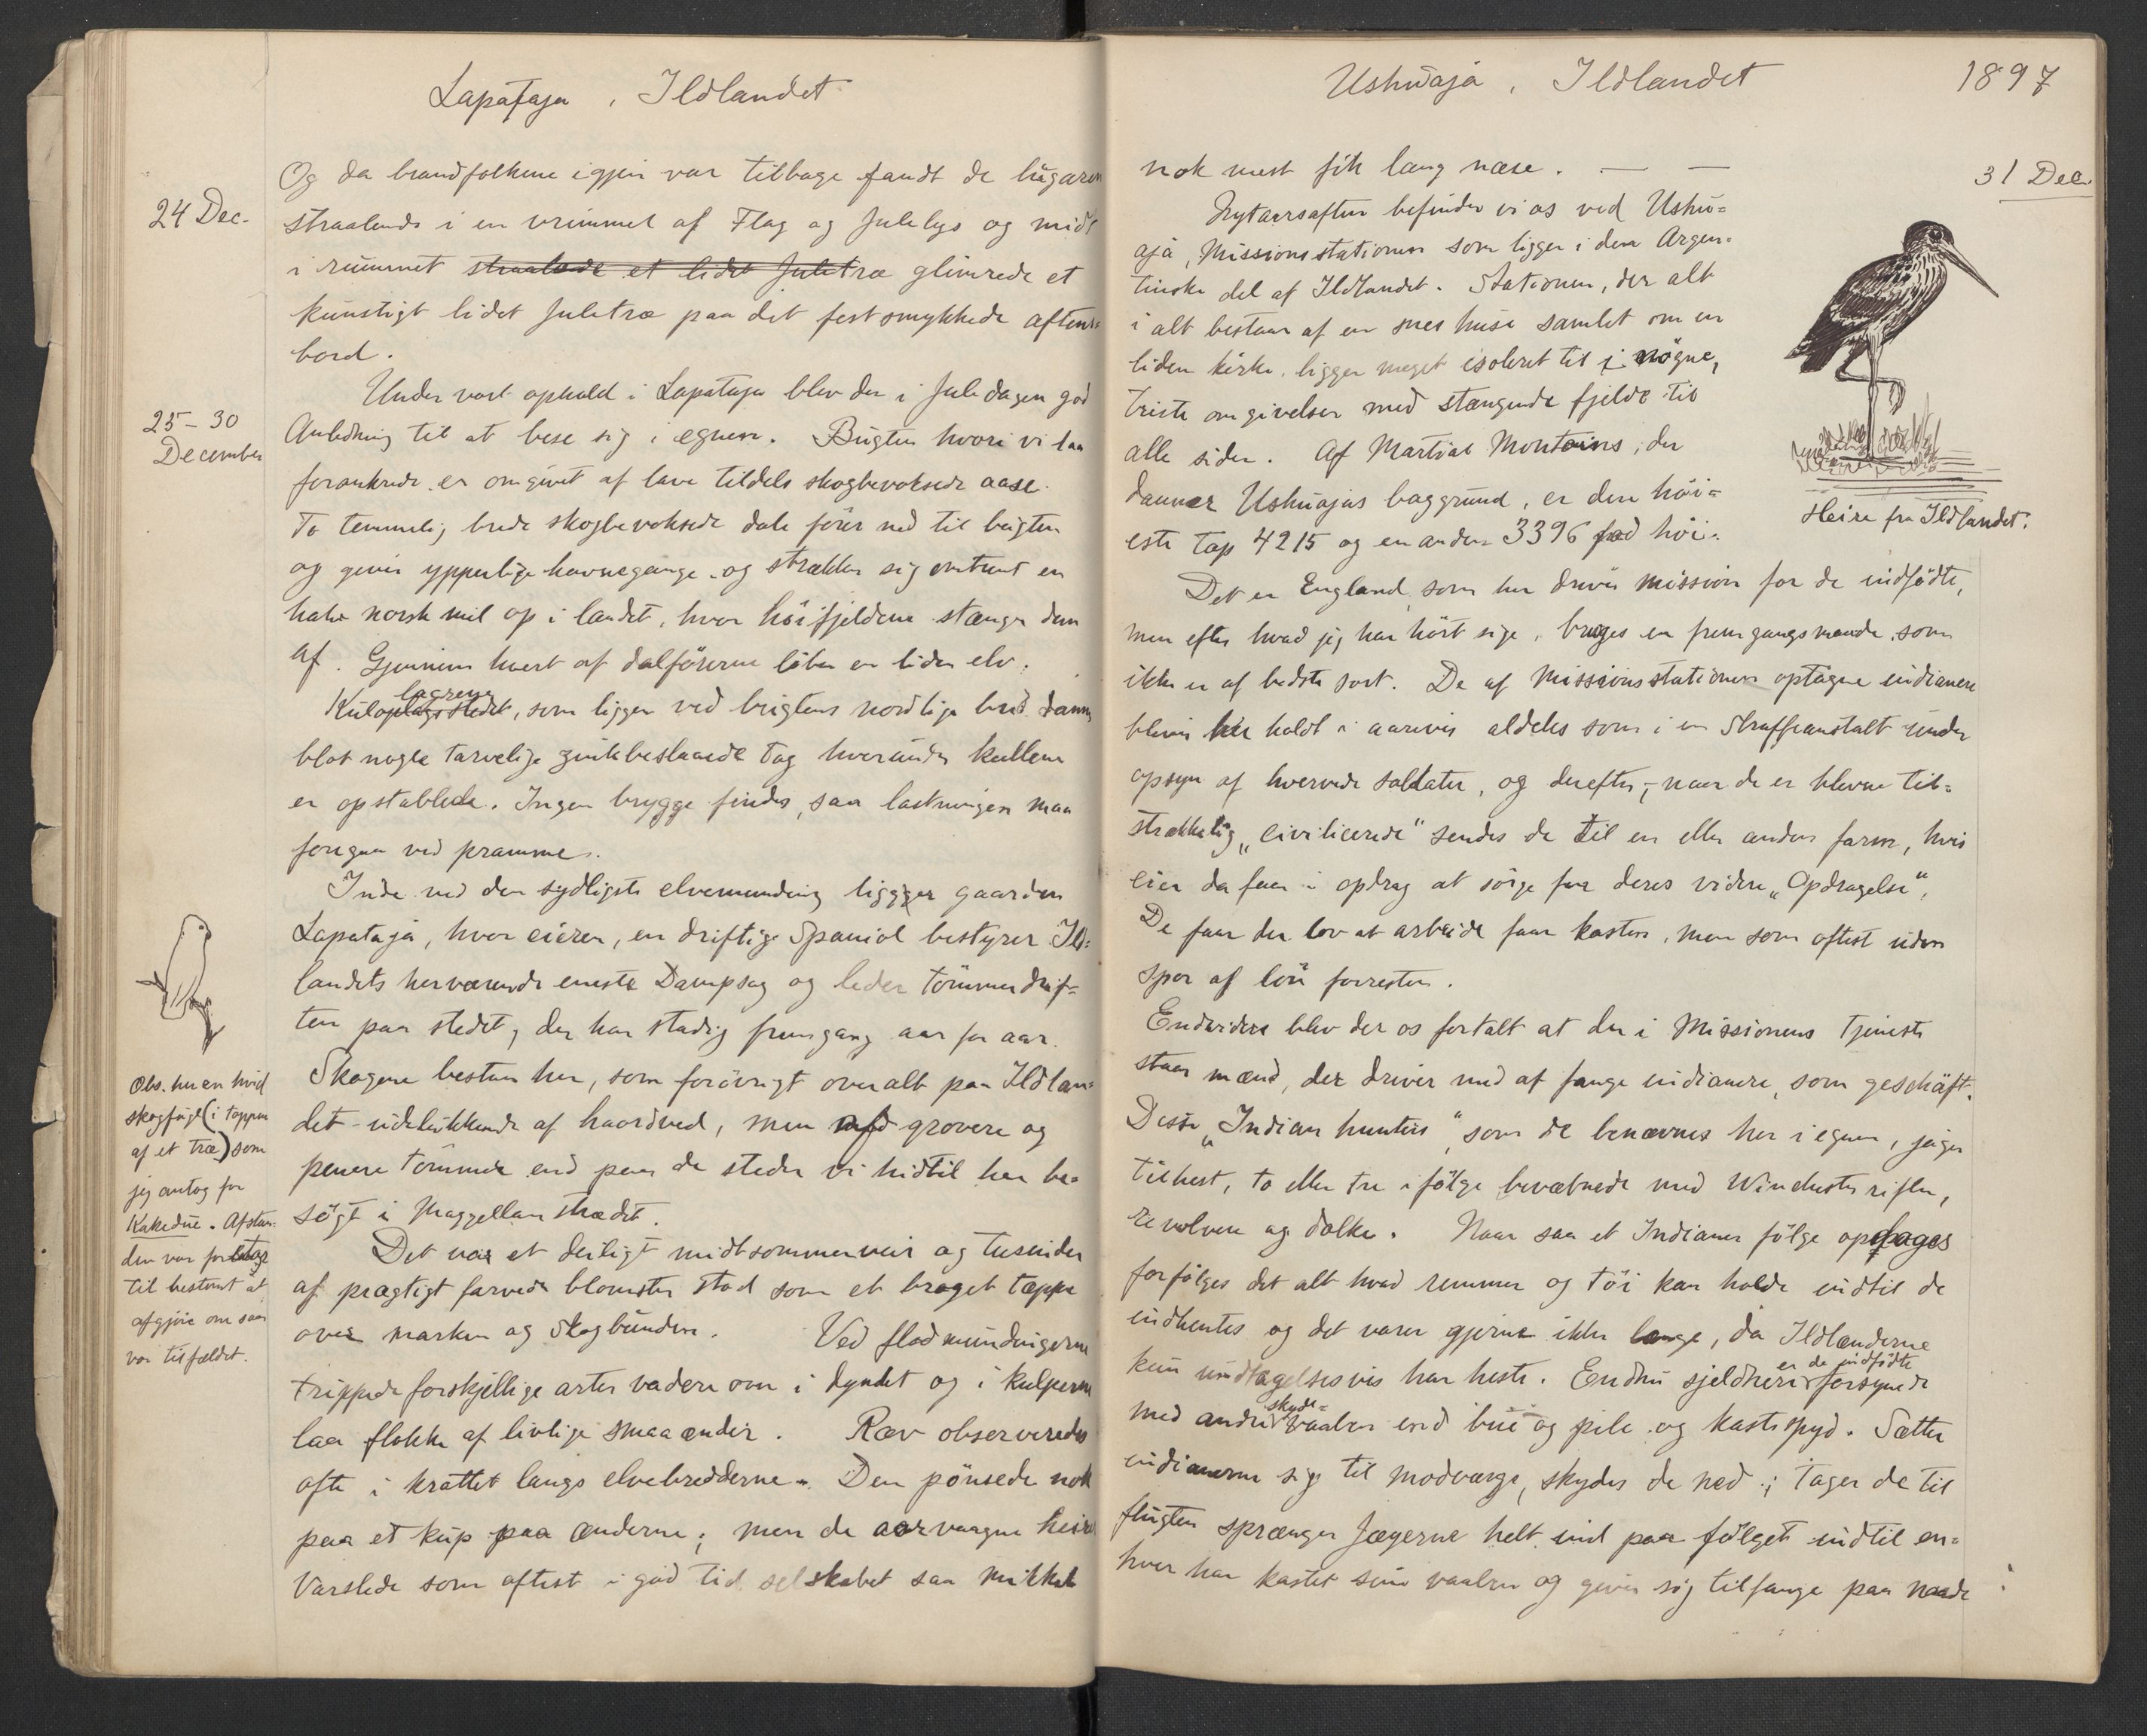 Lapataja, Ildlandet
24 Dec.
Og da brandfolkene igjen var tilbage fandt de lugaren
straalende i en vrimmel af Flag og Julelys og midt
i rummet straalede et lidet Juletræ glimrede et
kunstigt lidet Juletræ paa det festsmykkede aftens=
bord.
25-30
December
Under vort ophold i Lapataja blev der i Juledagen god
Anledning til at bese sig i egnen. Bugten hvori vi laa
forankrede er omgivet af lave tildels skogbevoksede aase.
To temmelig brede skogbevoksede dale fører ned til bugten
og giver ypperlige havnegange og strækker sig omtrent en
halv norsk mil op i landet, hvor høifjeldene stænger dem
af. Gjennem hvert af dalførerne løber en liden elv.
lagrene
Kuloplagsstedet, som ligger ved bugtens nordlige bred danner
blot nogle tarvelige zinkbeslaaede tag hvorunder kullene
er opstablede. Ingen brygge findes, saa lastningen maa
foregaa ved pramme.
Inde ved den sydligste elvemunding ligger gaarden
Lapataja, hvor eieren, en driftige Spaniol bestyrer Ild=
landets herværende eneste Dampsag og leder tømmerdrif=
ten paa stedet, der har stadig fremgang aar for aar.
Skogene bestaar her, som forøvrigt overalt paa Ildlan=
det udelukkende af haardved, men af grovere og
penere tømmer end paa de steder vi hidtil har be=
søgt i Maggellanstrædet.
Obs. her en hvid
skogfugl (i toppen
af et træ) som
jeg antog for
Kakedue. Afstan=
den var for lang
til bestemt at
afgjøre om saa
var tilfældet.
Det var et deiligt midtsommerveir og tusinder
af prægtigt farvede blomster stod som et broget tæppe
over marken og Skogbunden. Ved flodmundingerne
trippede forskjellige arter vadere om i dyndet og i kulperne
laa flokke af livlige smaaænder. Ræv observeredes
ofte i krattet langs elvebredderne. Den pønsede nok
paa et kup paa ænderne; men de aarvaagne heirer
varslede som oftest i god tid selskabet saa mikkel
Ushuaja, Ildlandet
1897
nok mest fik lang næse. — —
31 Dec.
Nytaarsaften befinder vi os ved Ushu=
aja, Missionsstationen som ligger i den Argen=
tinske del af Ildlandet. Stationen, der alt
i alt bestaar af en snes huse samlet om en
liden kirke, ligger meget isoleret til i nøgne,
triste omgivelser med stængende fjelde til
alle sider. Af Martial Montains, der
danner Ushuajas baggrund, er den høi=
este top 4215 og en anden 3396 fod høi.
Heire fra Ildlandet.
Det er England, som her driver mission for de indfødte,
men efter hvad jeg har hørt sige, bruges en fremgangsmaade, som
ikke er af bedste sort. De af Missionsstationen optagne indianere
bliver her holdt i aarevis aldeles som i en Straffeanstalt under
opsyn af hvervede soldater, og derefter, naar de er blevne til=
strækkelig „civilicerede" sendes de til en eller anden farm, hvis
eier da faar i opdrag at sørge for deres videre „Opdragelse",
De faar der lov at arbeide faar kosten, men som oftest uden
spor af løn forresten.
Endvidere blev der os fortalt at der i Missionens tjeneste
staar mænd, der driver med af fange indianere, som geschäft.
Disse „Indian hunters" som de benævnes her i egnen, jager
tilhest, to eller tre i følge bevæbnede med Winchester rifler,
revolvere og dolke. Naar saa et Indianer følge opdages
forfølges det alt hvad remmer og tøi kan holde indtil de
indhentes og det varer gjerne ikke længe, da Ildlænderne
kun undtagelsesvis har heste. Endnu sjeldnere er de indfødte forsynede
med andre skyde=vaaben end bue og pile og kastespyd. Sætter
indianerne sig til modværge, skydes de ned; tager de til
flugten sprænger Jægerne helt ind paa følget indtil en=
hver har kastet sine vaaben og giver sig tilfange paa naade